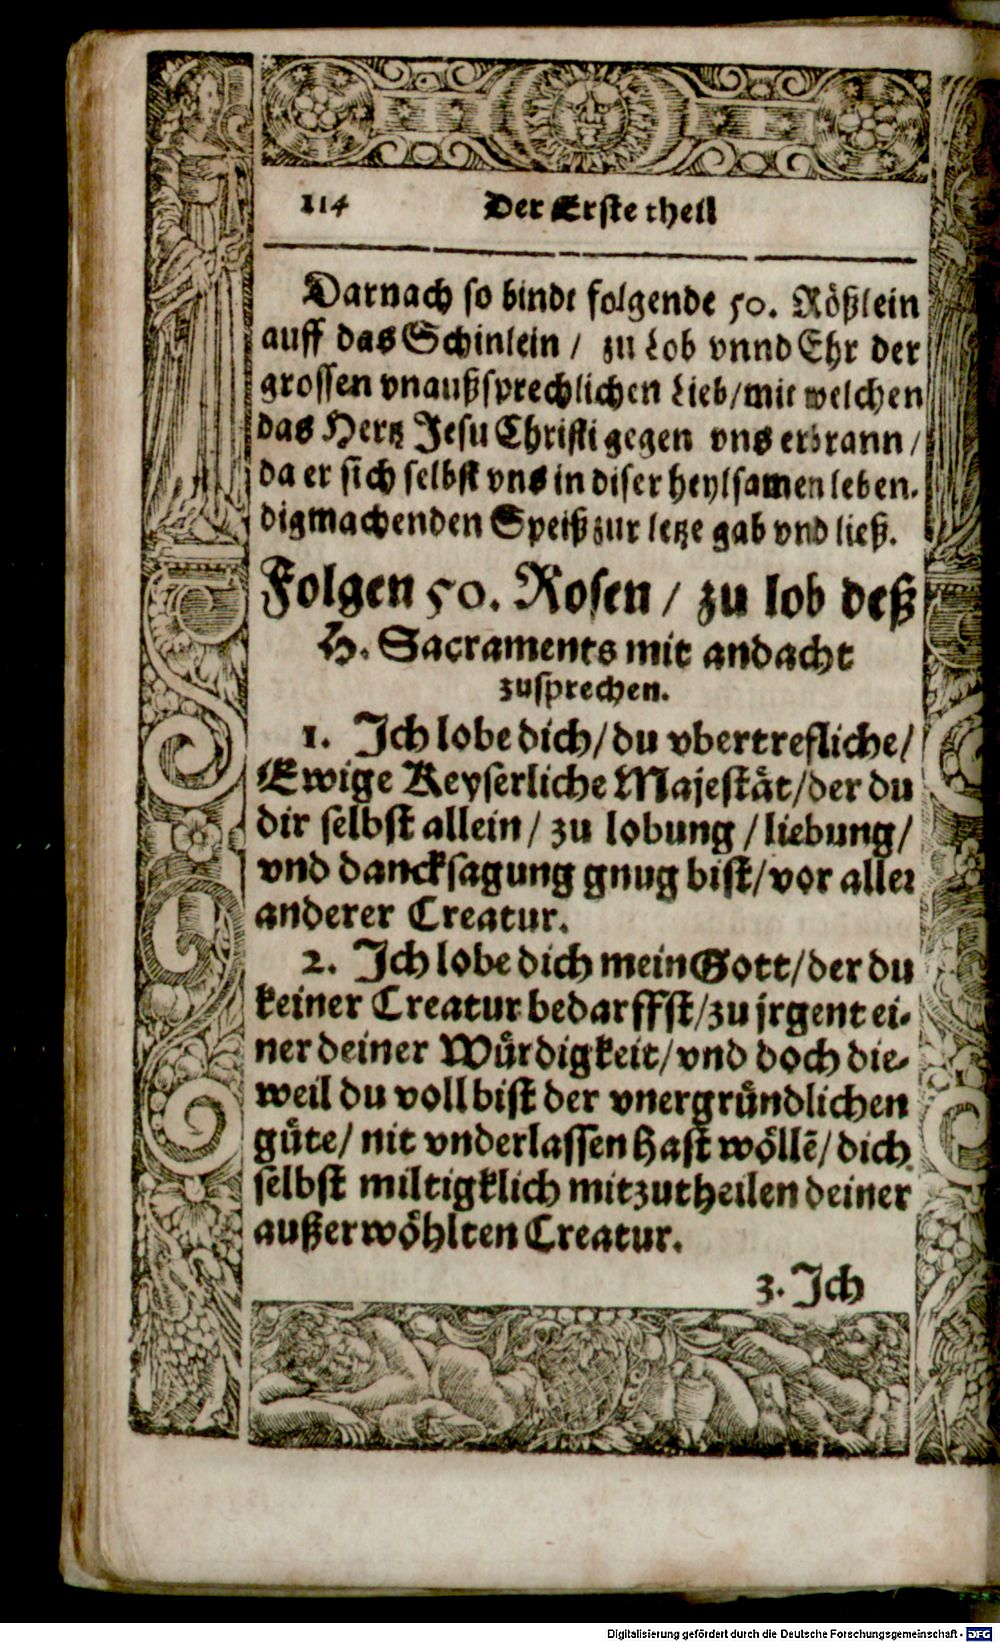 114 Der Erste theil
Darnach so bindt folgende 50. Rößlein
auff das Schinlein / zu Lob vnnd Ehr der
grossen vnaußsprechlichen Lieb/mit welchen
das Hertz Jesu Christi gegen vns erbrann /
da er sich selbst vns in diser heylsamen leben-
digmachenden Speiß zur letze gab vnd ließ.
Folgen 50. Rosen / zu lob deß
H. Sacraments mit andacht
zusprechen.
1. Ich lobe dich/du vbertrefliche/
Ewige Keyserliche Majeståt/der du
dir selbst allein / zu lobung / liebung/
vnd dancksagung gnug bist/vor aller
anderer Creatur.
2. Ich lobe dich mein Gott/der du
keiner Creatur bedarffst/zu jrgent ei-
ner deiner Wůrdigkeit/vnd doch die-
weil du voll bist der vnergrůndlichen
gůte/ nit vnderlassen hast wöllē/dich
selbst miltigklich mitzutheilen deiner
außerwöhlten Creatur.
3. Ich
Digitalisierung gefördert durch die Deutsche Forschungsgemeinschaft - DFG